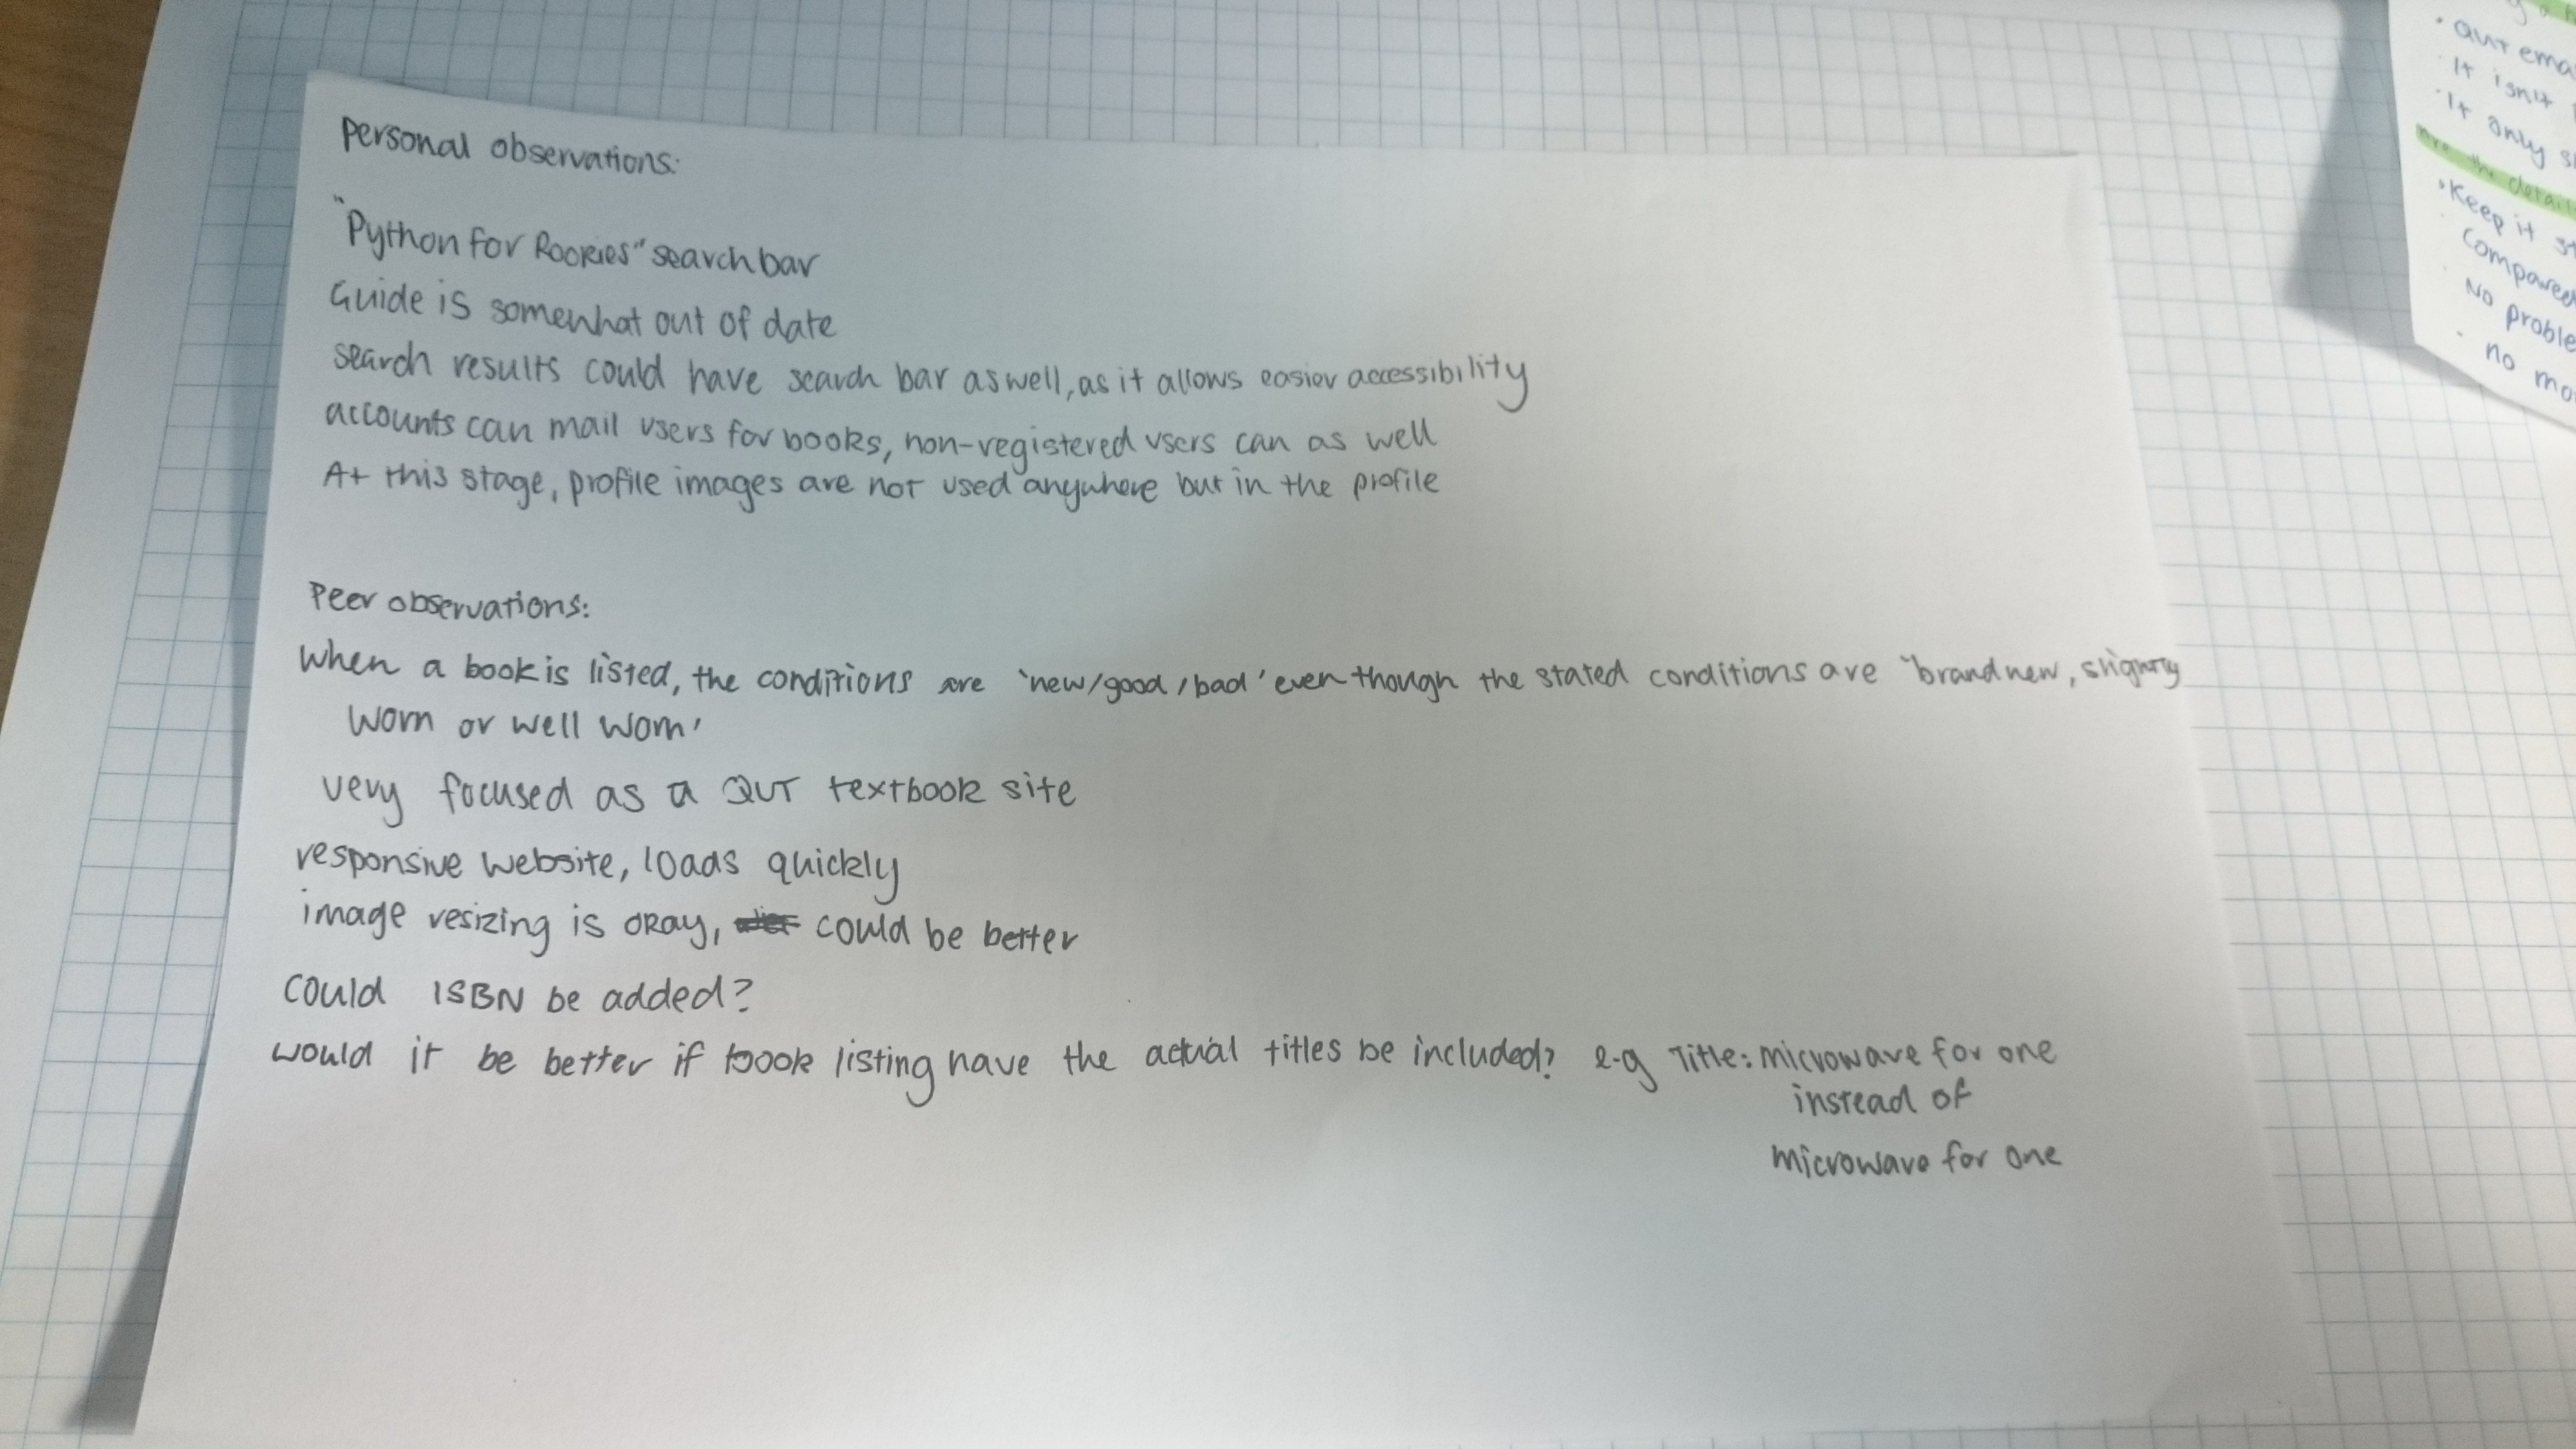 Personal observations:
"Python for Rookies" search bar
Guide is somewhat out of date
search results could have search bar aswell, as it allows easier accessibility
accounts can mail users for books, non-registered users can as well
At this stage, profile images are not used anywhere but in the profile
Peer observations:
When a book is listed, the conditions are 'new/good/bad' even though the stated conditions are 'brand new, slightly
worn or well worn'
very focused as a QUT textbook site
responsive website, loads quickly
image resizing is okay, could be better
could ISBN be added?
would it be better if book listing have the actual titles be included? e.g Title: microwave for one
instead of
microwave for one
QUT ema
It isn't
It only s
the detail
Keep it st
Compared
No proble
no mo